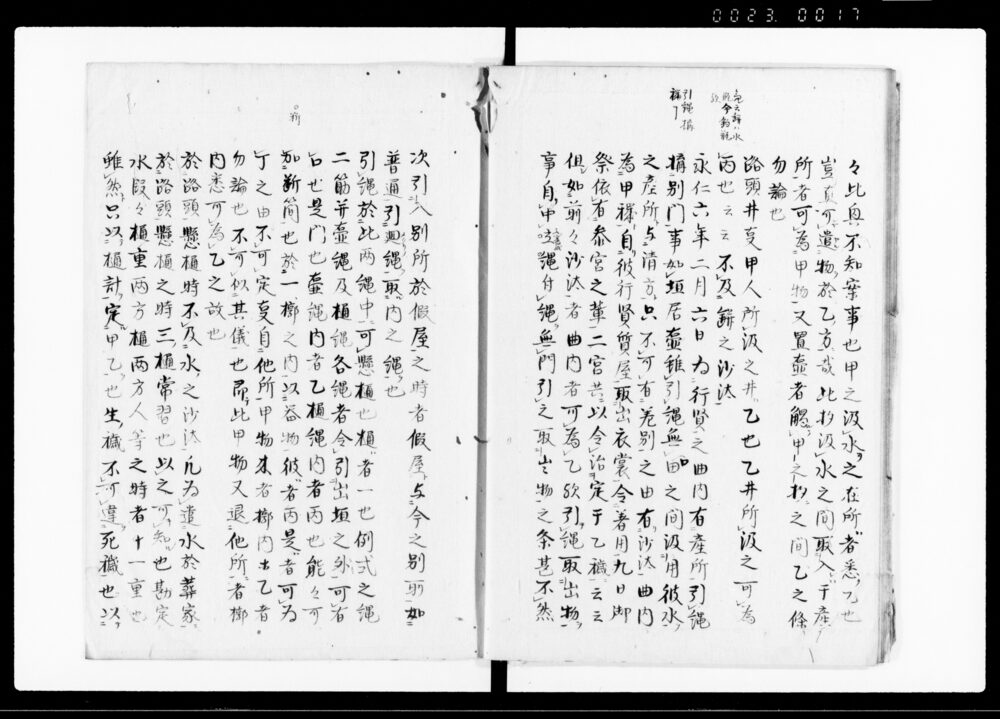 0023.0017
引縄構
々比興不知案事也甲之汲水之在所者悉乙也
豈真可遣物於乙方哉此杓汲水之間取入于産
所者可為甲物又買壷者觸甲之杓之間乙之條
勿論也
路頭井亘甲人所汲之井乙也乙井所汲之可為
丙也云云不及餅之沙汰
永仁六年二月六日為行賢之曲内有産所引縄
構別門事如垣居壷雖引縄無由之間汲用彼水
之産所与清方只不可有差別之由有沙汰曲内
為甲穢自彼行賢質屋取出衣裳令着用九日御
祭依有参宮之輩二宮共以令治定于乙穢云云
但如前々沙汰者曲内者可為乙歟引縄取出物
事自中縄付縄無門引之取出物之条甚不然
次引入別所於假屋之時者假屋与今之別可如
普通引廻縄取内之縄也
引縄於此両縄中可懸樋也樋者一也例式之縄
二筋并壷縄及樋縄各縄者令引出垣之外可有
口也是門也壷縄内者乙樋縄内者丙也能々可
加斷簡也於一榔之内以益物彼者丙是者可為
丁之由不可定亘自他所甲物来者榔内出乙者
勿論也不可似其儀也尓此甲物又退他所者榔
内悉可為乙之故也
於路頭懸樋時不及水之沙汰凡為遣水於葬家
於路頭懸樋之時三樋常習也以之可知也勘定
水段々樋重両方樋両方人等之時者十一重也
雖然只以樋計定甲乙也生穢不可違死穢也以